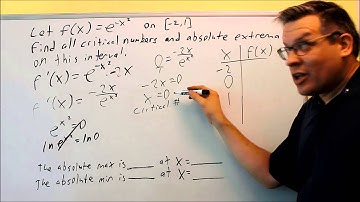 Let f(x) = e^{-x²} on [-2,1]
Find all critical numbers and absolute extrema
on this interval.
f'(x) = e^{-x²} · -2x
f'(x) = -2x / e^{x²}
0 = -2x / e^{x²}
-2x = 0
x = 0
critical #
e^{x²} = 0
ln e^{x²} = ln 0
x f(x)
-2
0
1
The absolute max is ____ at x = ____
The absolute min is ____ at x = ____